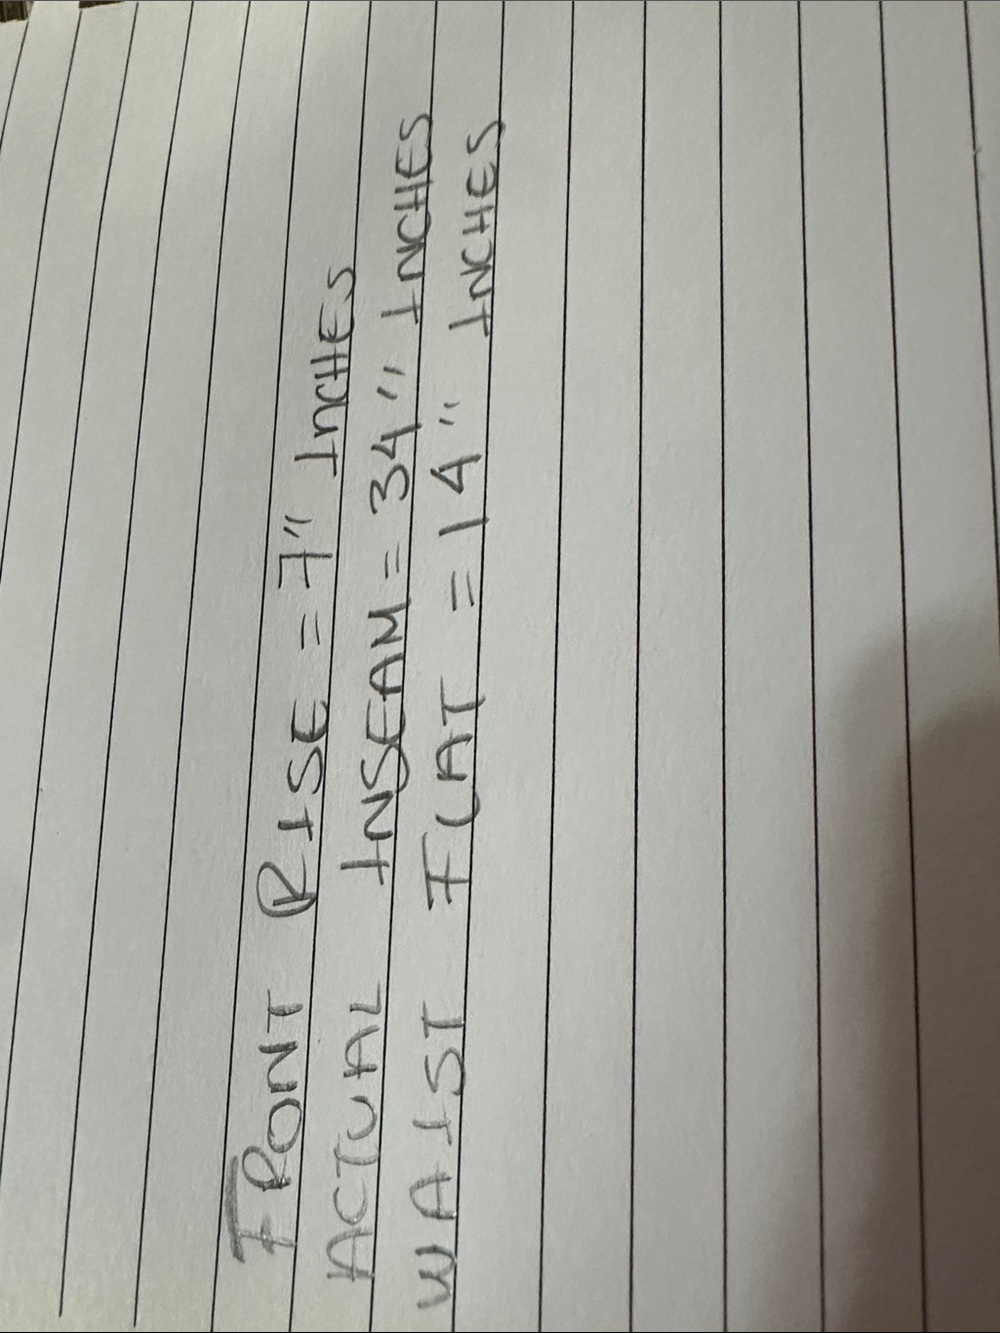 FRONT RISE = 7" INCHES
ACTUAL INSEAM = 34" INCHES
WAIST FLAT = 14" INCHES